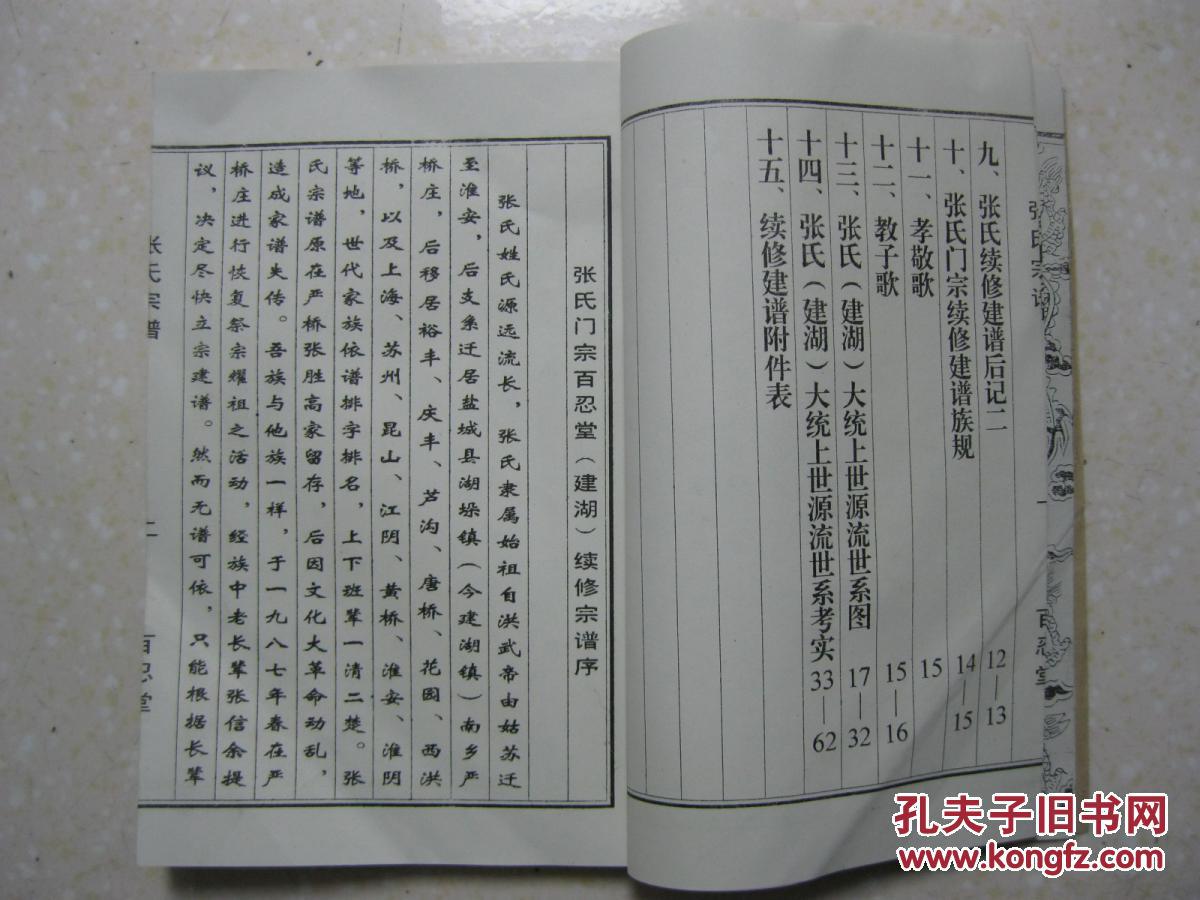 九、张氏续修建谱后记二 12—13
十、张氏门宗续修建谱族规 14—15
十一、孝敬歌 15
十二、教子歌 15—16
十三、张氏（建湖）大统上世源流世系图 17—32
十四、张氏（建湖）大统上世源流世系考实 33—62
十五、续修建谱附件表
张氏宗谱
百忍堂
张氏门宗百忍堂（建湖）续修宗谱序
张氏姓氏源远流长，张氏隶属始祖自洪武帝由姑苏迁
至淮安，后支系迁居盐城县湖垛镇（今建湖镇）南乡严
桥庄，后移居裕丰、庆丰、芦沟、唐桥、花园、西洪
桥，以及上海、苏州、昆山、江阴、黄桥、淮安、淮阴
等地，世代家族依谱排字排名，上下班辈一清二楚。张
氏宗谱原在严桥张胜高家留存，后因文化大革命动乱，
造成家谱失传。吾族与他族一样，于一九八七年春在严
桥庄进行恢复祭宗耀祖之活动，经族中老长辈张信余提
议，决定尽快立宗建谱。然而无谱可依，只能根据长辈
张氏宗谱
二
百忍堂
孔夫子旧书网
www.kongfz.com